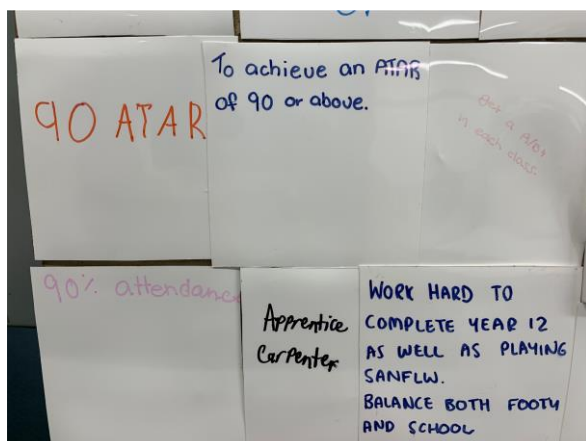 90 ATAR
To achieve an ATAR
of 90 or above.
Get a A/B+
in each class.
90% attendance
Apprentice
Carpenter
WORK HARD TO
COMPLETE YEAR 12
AS WELL AS PLAYING
SANFLW.
BALANCE BOTH FOOTY
AND SCHOOL